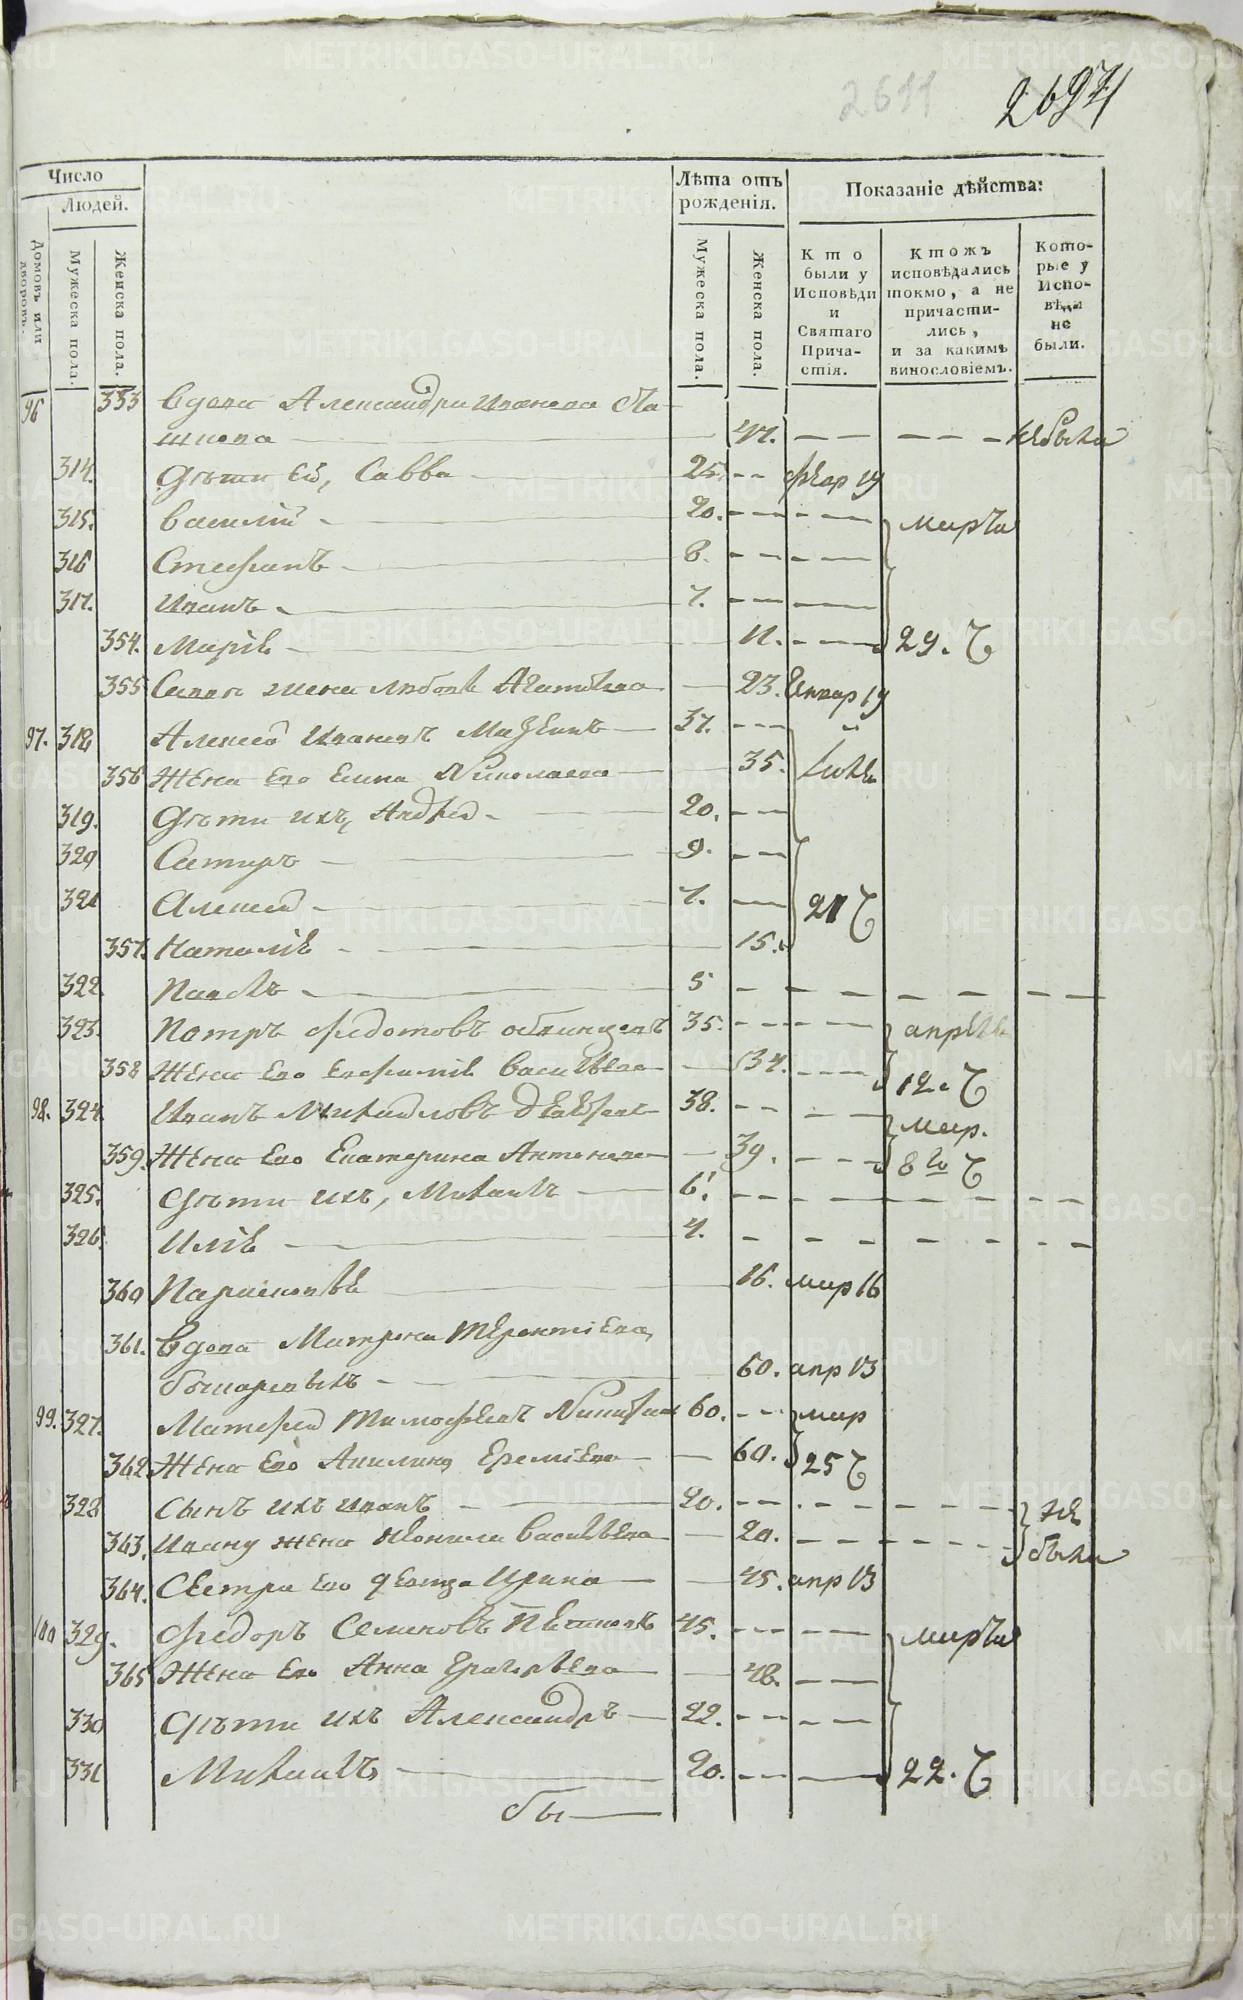 2611
Число
Людей.
Домовъ или дворовъ.
Мужеска пола.
Женска пола.
Лѣта отъ рожденія.
Мужеска пола.
Женска пола.
Показаніе дѣйства:
Кто были у Исповѣди и Святаго Причастія.
Ктожъ исповѣдались токмо, а не причастились, и за какимъ винословіемъ.
Которые у Исповѣди не были.
96 353 Вдова Александра Иванова
47. — — — — — не была
314. Дѣти Ей, Савва — 25. — —
315. Василій — 20. — — — — марта
316 Стефанъ — 8. — — — —
317. Иванъ — 7. — — — —
354. Марія — 11. — — — 29. Ч
355 Савы жена 23. Генвар 19
97. 318 Алексей Ивановъ 37. — —
356 Жена Его Елена Николаева — 35. Июля
319. Дѣти ихъ, Андрей — 20. — —
320 Сатиръ — 9. — —
321 Алексей — 7. — — 21 Ч
357. Наталія — 15.
322 Павелъ — 5 — — — — — — — —
323. Петръ Федотовъ 35. — — — — апрѣля
358 Жена Его Евфимія Васильева — 34. — — — 12. Ч
98. 324 Иванъ Михайловъ 38. — — — — мар.
359. Жена Его Екатерина Антонова — 39. — — — 8го Ч
325. Дѣти ихъ, Михаилъ — 6. — — — — — — — —
326. Илія — 4. — — — — — — — —
360 Парасковья 16. мар 16
361. Вдова Матрена Терентіева,
60. апр 13
99. 327. Матфей Тимофеевъ 60. — — мар
362 Жена Его Акилина Еремѣева — 60. 25 Ч
328 Сынъ ихъ Иванъ — 20. — — — — — — не
363. Ивану жена Неонила Васильева — 20. — — — — — — были
364. Сестра Его девица Ирина — 45. апр 13
100 329. Федоръ Семеновъ 45. — — — — марта
365 Жена Его Анна Григорьева — 48. — —
330 Дѣти ихъ Александръ — 22. — — — —
331 Михаилъ — 20. — — — 22. Ч